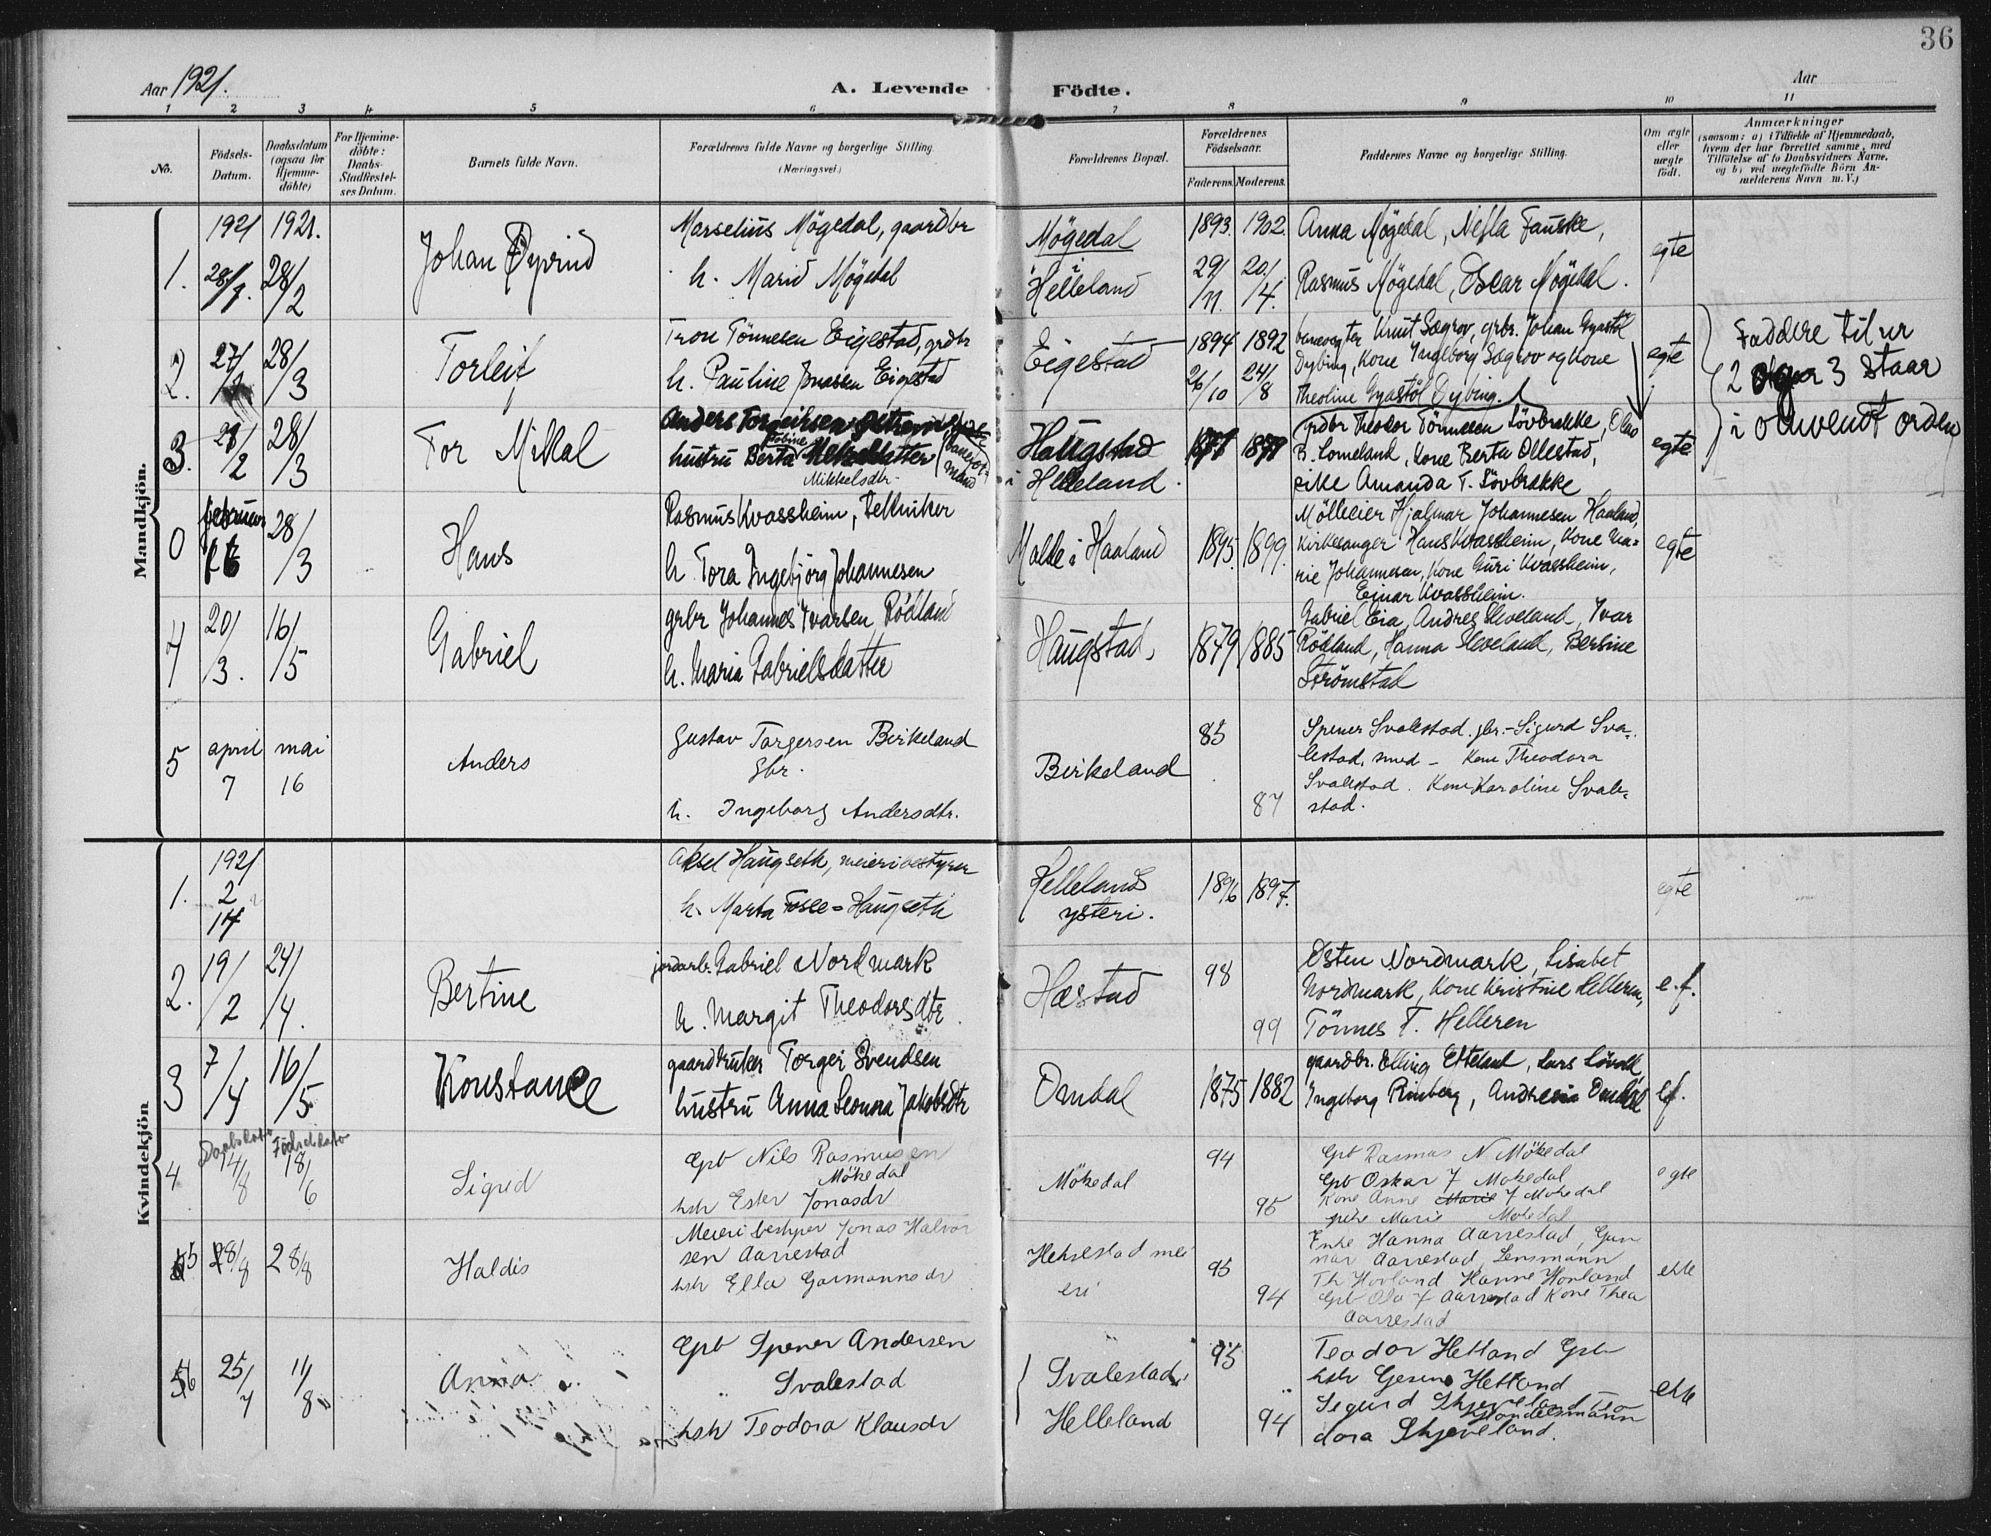 36
Aar 1921.
A. Levende Födte.
Aar
1 2 3 4 5 6 7 8 9 10 11
No.
Födsels-
Datum.
Daabsdatum
(ogsaa for
Hjemme-
döbte)
For Hjemme-
döbte:
Daabs-
Stadfæstel-
ses Datum.
Barnets fulde Navn.
Forældrenes fulde Navne og borgerlige Stilling.
(Næringsvei.)
Forældrenes Bopæl.
Forældrenes
Födselsaar.
Faderens. Moderens.
Faddernes Navne og borgerlige Stilling.
Om ægte
eller
uægte
födt.
Anmærkninger
(saasom: a) i Tilfælde af Hjemmedaab,
hvem der har forrettet samme, med
Tilföielse af to Daabsvidners Navne,
og b) ved uægtefödte Börn An-
melderens Navn m. V.)
Mandkjön.
1.
1921
28/1.
1921.
28/2
Johan Øyvind
Marselius Mögedal, gaardbr
h. Marid Mögedal
Mögedal
i
Helleland
1893.
29/11.
1902.
20/4.
Anna Mögedal, Nefla Fauske,
Rasmus Mögedal, Oscar Mögedal.
egte
2.
27/
28/3
Torleif
Tron Tönnesen Eigestad, grdbr
h. Pauline Jonassen Eigestad
Eigestad
1894
26/10
1892
24/8
banevogter Knut Sægrov, grbr. Johan Gyastöl
Dybing, Kone Ingeborg Sægrov og Kone
Theoline Gyastöl Dybing.
egte
Faddere til nr
2 og 3 staar
i omvendt orden
3.
28/2
28/3
Tor Mikal
Anders
hustru Berta
Tobine
Mikkelsdtr.
Haugstad
i Helleland.
grdbr Theodor Tönnesen Lövbrække, Olas
B. Lomeland, Kone Berta Ollestad,
pike Amanda T. Lövbrække
egte
0
februar
28/3
Hans
Rasmus Kvassheim, Tekniker
h. Tora Ingebjörg Johannesen
Malde i Haaland
1895.
1899.
Mölleier Hjalmar Johannesen Haaland,
Kirkesanger Hans Kvassheim, Kone Ma=
rie Johannesen, Kone Guri Kvassheim,
Einar Kvassheim.
egte
4
20/3.
16/5
Gabriel
grbr Johannes Ivarsen Rödland
h. Maria Gabrielsdatter
Haugstad,
1879
1885
Gabriel Eia, Andreas Sleveland, Ivar
Rödland, Hanna Sleveland, Bertine
Strömstad
5
april
7
mai
16
Anders
Gustav Torgersen Birkeland
Gbr.
h. Ingeborg Andersdtr.
Birkeland
85
87
Spener Svalestad. gbr.- Sigurd Sva-
lestad, smed - Kone Theodora
Svalestad. Kone Karoline Svale-
stad.
Kvindekjön
1.
1921
2
14
Aksel Haugseth, meieribestyrer
h. Marta Haugseth
Hellelands
ysteri.
1896
1897.
egte
2.
19/2
24/4.
Bertine
jordarb. Gabriel Nordmark
h. Margit Theodorsdtr.
Hæstad
98
99
Østen Nordmark, Lisabet
Nordmark, Kone Kristine Helleren,
Tönnes T. Helleren
e.f.
3
7/4
16/5
Konstance
gaardbruker Torger Svendsen
hustru Anna Leonora Jakobsdtr
Omdal
1875
1882
gaardbr. Elling Etteland, Lars
Ingeborg Rinberg, Omdal
ef.
4
Daabsdato
14/8
Födselsdato
18/6
Sigred
Gpb Nils Rasmusen
Mökedal
hstr Ester Jonasdr
Mökedal
94
95
Gpb Rasmus N. Mökedal
Gpb Oskar T Mökedal
Kone Anne Marie T Mökedal
pike Marie Mökedal
egte
5
28/8
28/8
Haldis
Meieribestyrer Jonas Halvor
sen Aarrestad
hstr Ella Garmannsdr
Helsestad mei
eri
95
94
Enke Hanna Aarrestad, Gun
nar Aarrestad, Lensmann
Th Hovland Hanne Hovland
Gpb Ola T Aarrestad Kone Thea
Aarrestad
ekte
6
25/7
11/8
Anna
Gpb Spener Andersen
Svalestad
hstr Teodora Klausdr
Svalestad
Helleland
95
94
Teodor Hetland Gpb
hstr Gesine Hetland
Sigurd Skjeveland Teo
Handelsmann
dora Skjeveland.
ekte